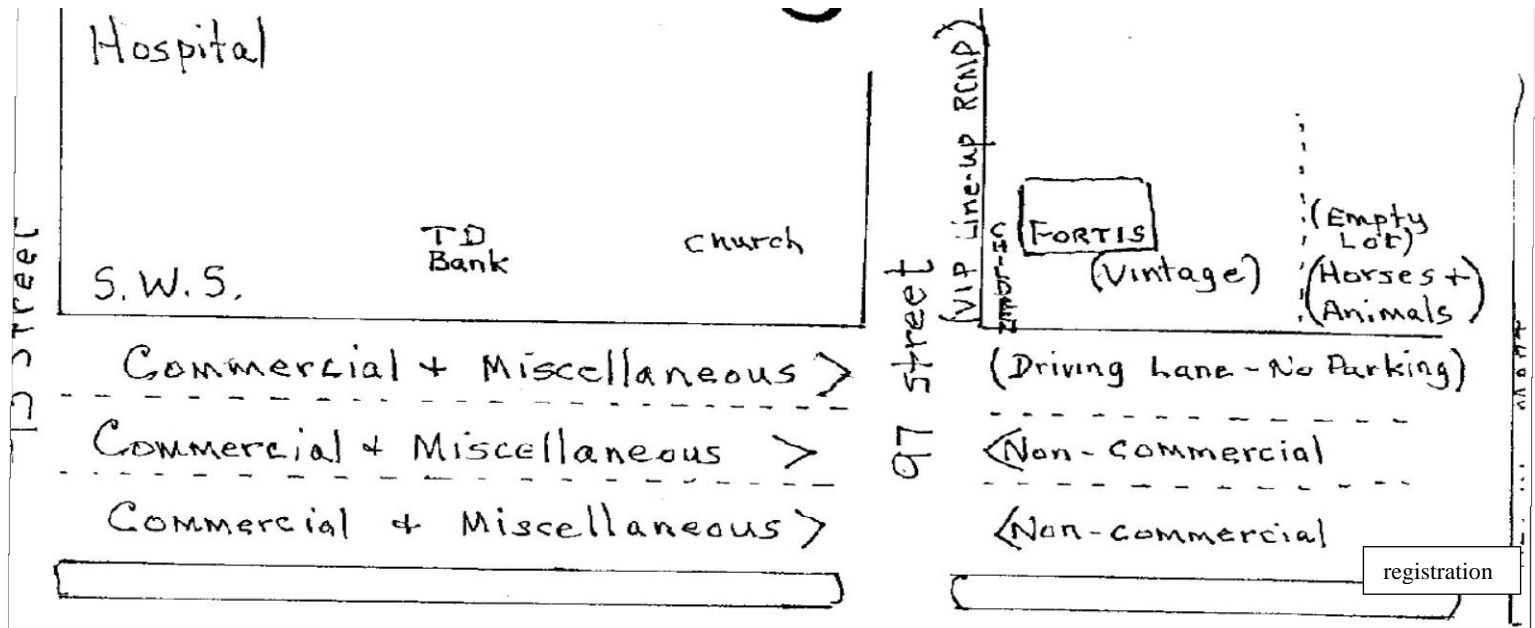 Hospital
TD
Bank
Church
S.W.S.
Street
Commercial + Miscellaneous >
Commercial + Miscellaneous >
Commercial + Miscellaneous >
97 street
(VIP Line-up RCMP)
FORTIS
(Vintage)
(Empty
Lot)
(Horses +
Animals)
(Driving Lane - No Parking)
<Non-Commercial
<Non-commercial
registration